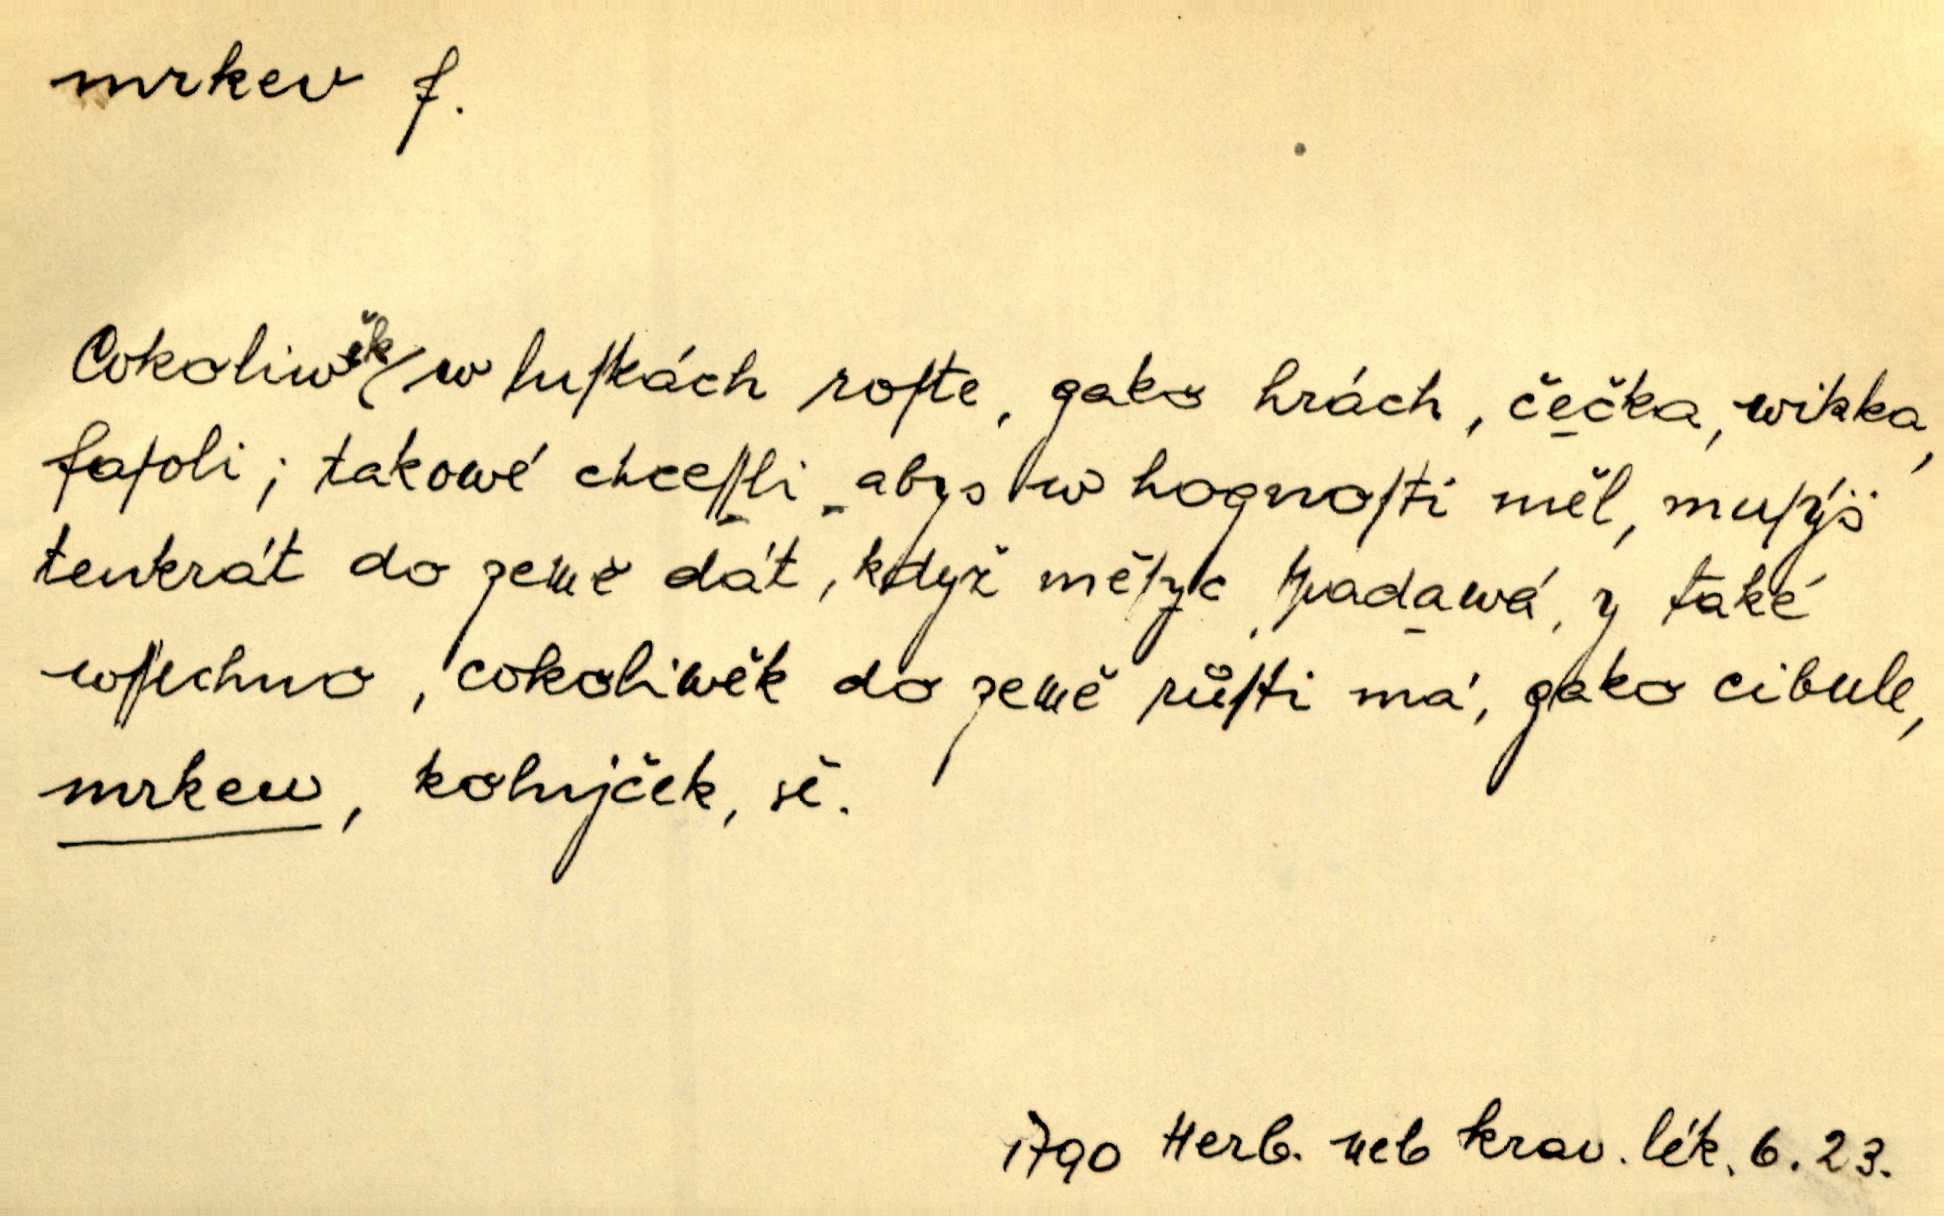 mrkev f.
Cokoliwěk w luſkách roſte, gako hrách, čečka, wikka,
faſoli; takowé chceſſli abys w hognoſti měl, muſýš
tenkrát do země dát, když měſyc ſpadawá, y také
wſſechno, cokoliwěk do země růſti má, gako cibule,
mrkew, kolnjček, sč.
1790 Herb. neb krav. lék. 6. 23.